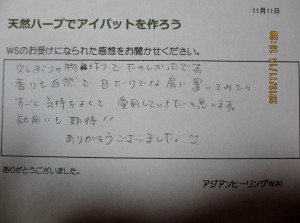 11月11日
天然ハーブでアイパットを作ろう
WSのお受けになられた感想をお聞かせください。
久しぶりの物作りでたのしかったです。
香りも自然で目だけでなく肩に置いてみたら
すごく気持ちよくて愛用していきたいと思います。
効用にも期待!!
ありがとうございました。
ありがとうございました。
アジアンヒーリングWAI